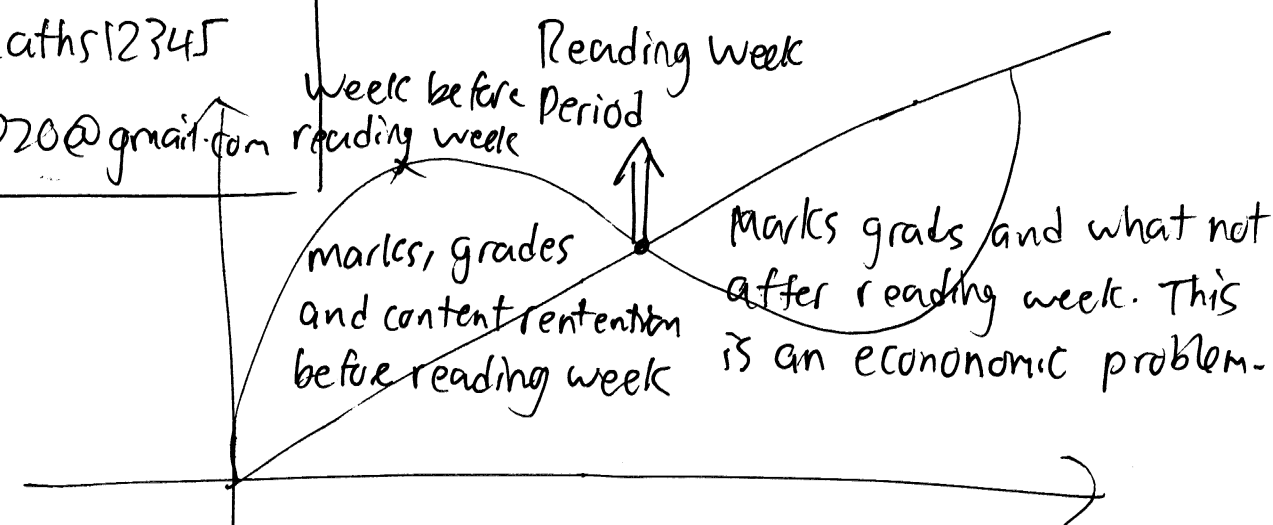 aths12345
20@gmail.com
Week before
reading week
Reading Week
Period
marks, grades
and content rentention
before reading week
Marks grads and what not
after reading week. This
is an econonomic problem.